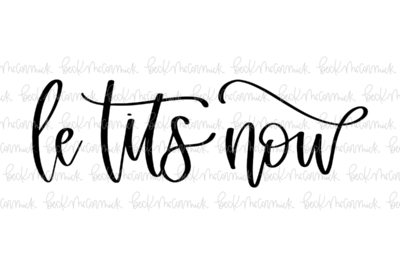 le tits now